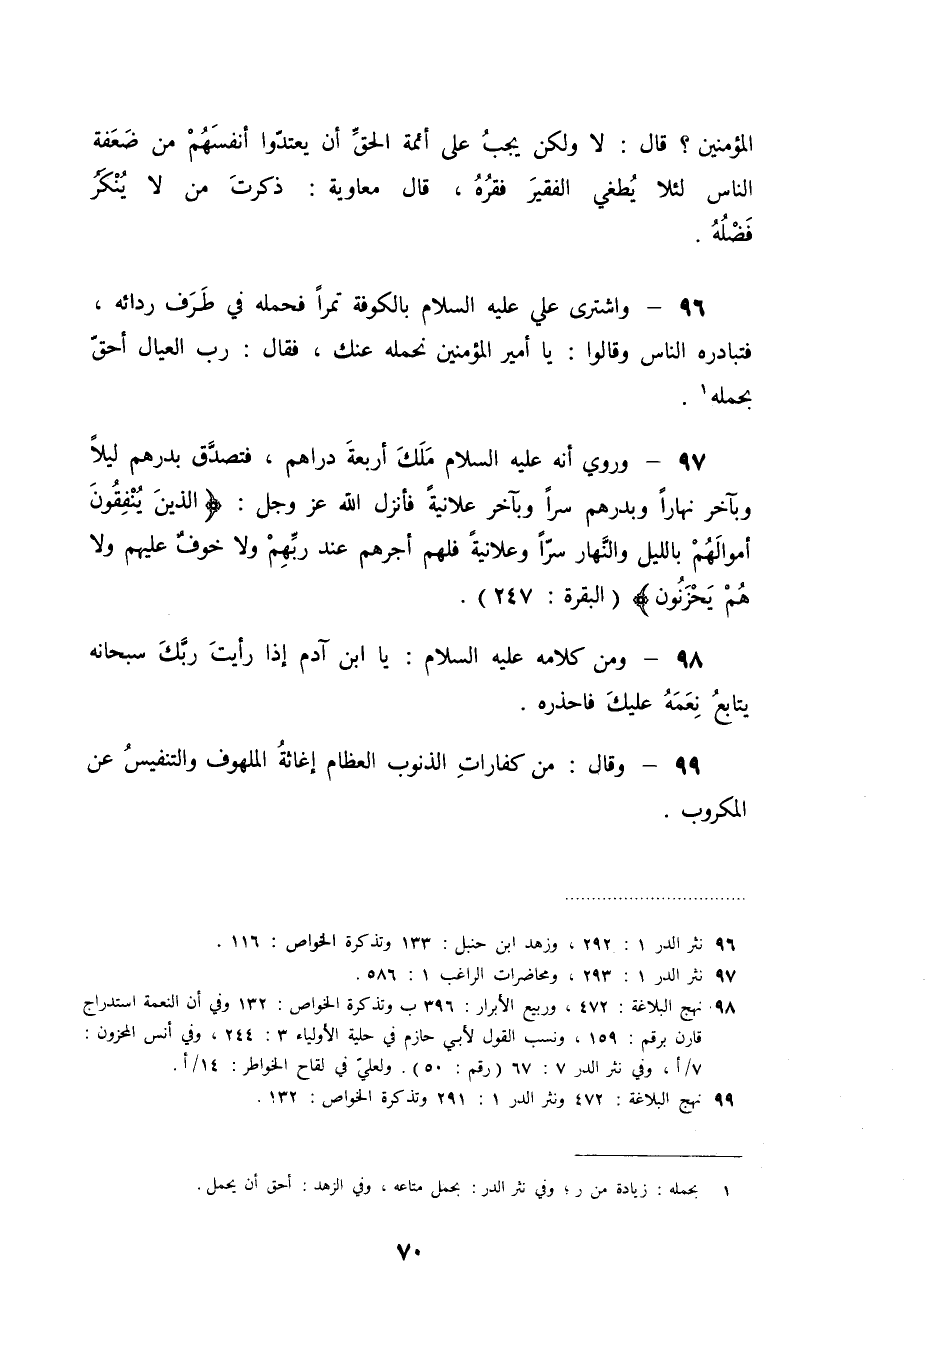 المؤمنين ؟ قال : لا ولكن يجبُ على أئمة الحقِّ أن يعتدّوا أنفسَهُمْ من ضَعَفة
الناس لئلا يُطغي الفقيرَ فقرُهُ ، قال معاوية : ذكرتَ من لا يُنْكَرُ
فَضْلُهُ .
٩٦ – واشترى علي عليه السلام بالكوفة تمراً فحمله في طَرَف ردائه ،
فتبادره الناس وقالوا : يا أمير المؤمنين نحمله عنك ، فقال : رب العيال أحقّ
بحمله١ .
٩٧ – وروي أنه عليه السلام مَلَكَ أربعةَ دراهم ، فتصدَّق بدرهم ليلاً
وبآخر نهاراً وبدرهم سراً وبآخر علانيةً فأنزل الله عز وجل : ﴿ الذينَ يُنْفِقُونَ
أموالَهُمْ بالليل والنَّهار سرّاً وعلانيةً فلهم أجرهم عند ربِّهِمْ ولا خوفٌ عليهم ولا
هُمْ يَحْزَنُون ﴾ ( البقرة : ٢٤٧ ) .
٩٨ – ومن كلامه عليه السلام : يا ابن آدم إذا رأيتَ ربَّكَ سبحانه
يتابعُ نِعَمَهُ عليكَ فاحذره .
٩٩ – وقال : من كفاراتِ الذنوب العظام إغاثةُ الملهوف والتنفيسُ عن
المكروب .
٩٦ نثر الدر ١ : ٢٩٢ ، وزهد ابن حنبل : ١٣٣ وتذكرة الخواص : ١١٦ .
٩٧ نثر الدر ١ : ٢٩٣ ، ومحاضرات الراغب ١ : ٥٨٦ .
٩٨ نهج البلاغة : ٤٧٢ ، وربيع الأبرار : ٣٩٦ ب وتذكرة الخواص : ١٣٢ وفي أن النعمة استدراج
قارن برقم : ١٥٩ ، ونسب القول لأبي حازم في حلية الأولياء ٣ : ٢٤٤ ، وفي أنس المحزون :
٧/أ ، وفي نثر الدر ٧ : ٦٧ ( رقم : ٥٠ ) . ولعليّ في لقاح الخواطر : ١٤/أ .
٩٩ نهج البلاغة : ٤٧٢ ونثر الدر ١ : ٢٩١ وتذكرة الخواص : ١٣٢ .
١ بحمله : زيادة من ر ؛ وفي نثر الدر : بحمل متاعه ، وفي الزهد : أحق أن يحمل .
٧٠